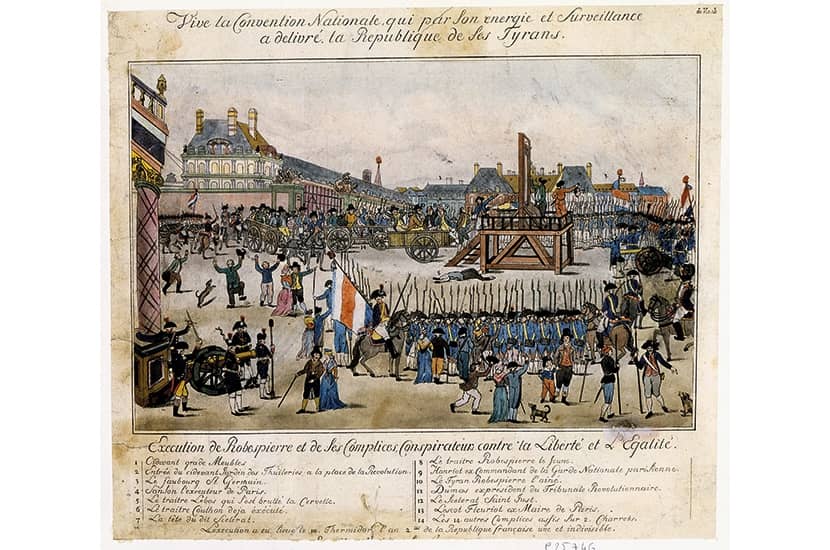 Vive la Convention Nationale, qui par son energie et Surveillance
a delivré, la Republique de Ses Tyrans.
Execution de Robespierre et de Ses Complices, Conspirateurs contre la Liberté et L'Egalité.
1 Cidevant garde Meubles
2 Entrés du cidevant Jardin des Thuileries, a la place de la Revolution.
3 Le faubourg St Germain.
4 Sanson l'executeur de Paris.
5 Le traitre Lebas qui s'est brulté la Cervelle.
6 Le traitre Couthon deja éxécuté.
7 La tête du dit Scélérat.
8 Le traitre Robespierre le jeune.
9 Hanriot ex Commandant de la Garde Nationale parisienne.
10 Le Tyran Robespierre l'ainé.
11 Dumas expresident du Tribunale Revolutionnaire.
12 Le Sceterat Saint Just.
13 Lescot Fleuriot ex Maire de Paris.
14 Les 14 autres Complices assis Sur 2 Charrets.
L'execution a eu lieu le 10 Thermidor l'an 2me de la Republique française une et indivisible.